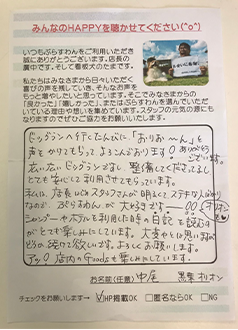 みんなのHAPPYを聴かせてください(^o^)
いつもぷらすわんをご利用いただき
誠にありがとうございます。店長の
眞中です。そして看板犬のたまです。
私たちはみなさまから日々いただく
喜びの声を残していき、そんなお声を
もっと増やしたいと思っています。そこでみなさまからの
「良かった」「嬉しかった」またはぷらすわんを選んでいただい
ている理由や想いを集めています。スタッフの元気の源にも
なりますのでぜひご協力をお願いいたします。
ドッグランへ行くたんびに「おりお〜ん」と
声をかけてもらって、よろこんでおります!! ありがとう
ございます。
広い広いドッグランですし、整備してくださってるし
とても安心して利用させてもらっています。
私は、店長はじめスタッフさんが明るくてステキな人ばかり
なので、ぷらすわんが大好きです
シャンプーやホテルを利用した時の日記を読むの
がとても楽しみにしています。大変かとは思いますが
どうか続けて欲しいです。よろしくお願いします。
店内のGoodsも楽しみにしています。
お名前(任意) 中尾 黒柴オリオン
チェックをお願いします→ ☑HP掲載OK □匿名ならOK □NG